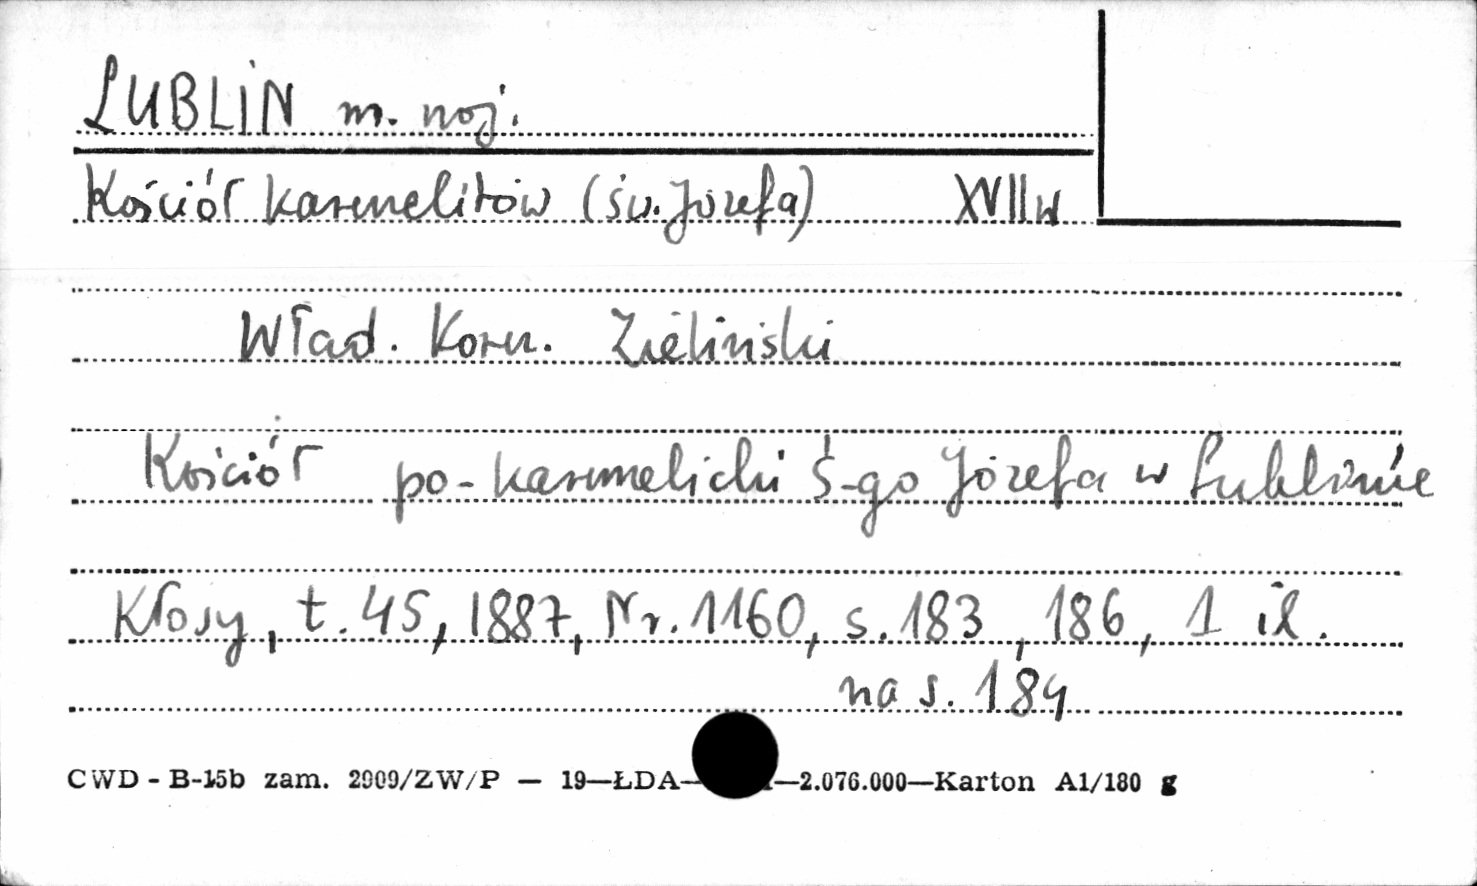 LUBLIN m. woj.
Kościół karmelitów (św. Józefa) XVII w
Wład. Korn. Zieliński
Kościół po-karmelicki Ś-go Józefa w Lublinie
Kłosy, t. 45, 1887, Nr. 1160, s. 183, 186, 1 il.
na s. 184
CWD - B-15b zam. 2909/ZW/P — 19—ŁDA— —2.076.000—Karton A1/180 g